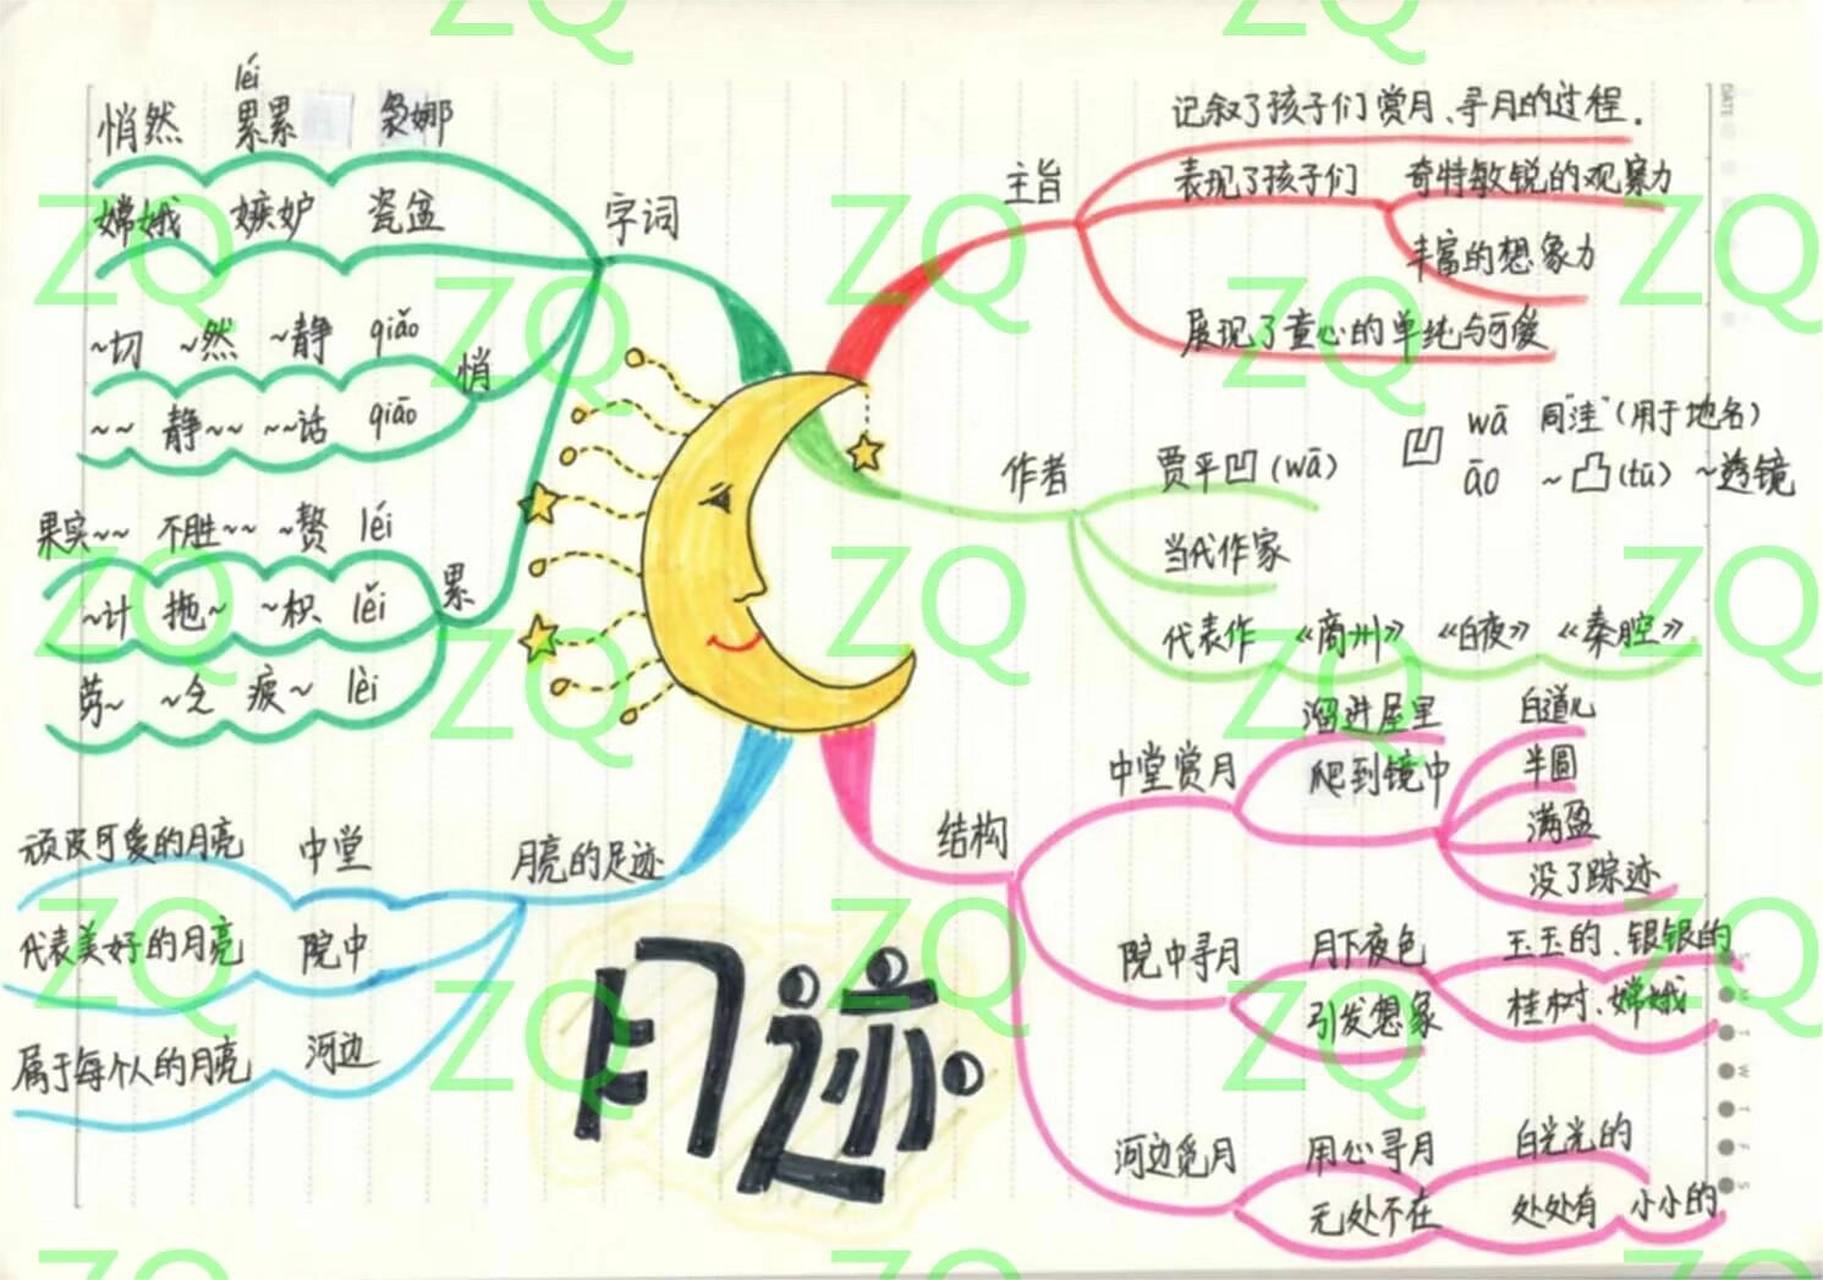 léi
悄然 累累 袅娜
嫦娥 嫉妒 瓷盆
字词
~切 ~然 ~静 qiǎo
悄
~~ 静~~ ~~话 qiāo
果实~~ 不胜~~ ~赘 léi
累
~计 拖~ ~积 lěi
劳~ ~ 疲~ lèi
主旨
记叙了孩子们赏月、寻月的过程.
表现了孩子们 奇特敏锐的观察力
丰富的想象力
展现了童心的单纯与可爱
作者
贾平凹(wā)
凹 wā 同"洼"(用于地名)
āo ~凸(tū) ~透镜
当代作家
代表作 《商州》 《白夜》 《秦腔》
月亮的足迹
顽皮可爱的月亮 中堂
代表美好的月亮 院中
属于每个人的月亮 河边
月迹
结构
中堂赏月 溜进屋里
爬到镜中
白道儿
半圆
满盈
没了踪迹
院中寻月 月下夜色 玉玉的、银银的
引发想象 桂树、嫦娥
河边觅月 用心寻月 白光光的
无处不在 处处有 小小的
DATE
S
M
T
W
T
F
S
ZQ ZQ
ZQ ZQ ZQ
ZQ ZQ
ZQ ZQ ZQ
ZQ ZQ
ZQ ZQ ZQ
ZQ ZQ
ZQ ZQ ZQ